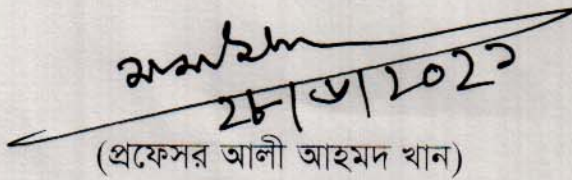 ২৮|৬|২০২১
(প্রফেসর আলী আহমদ খান)